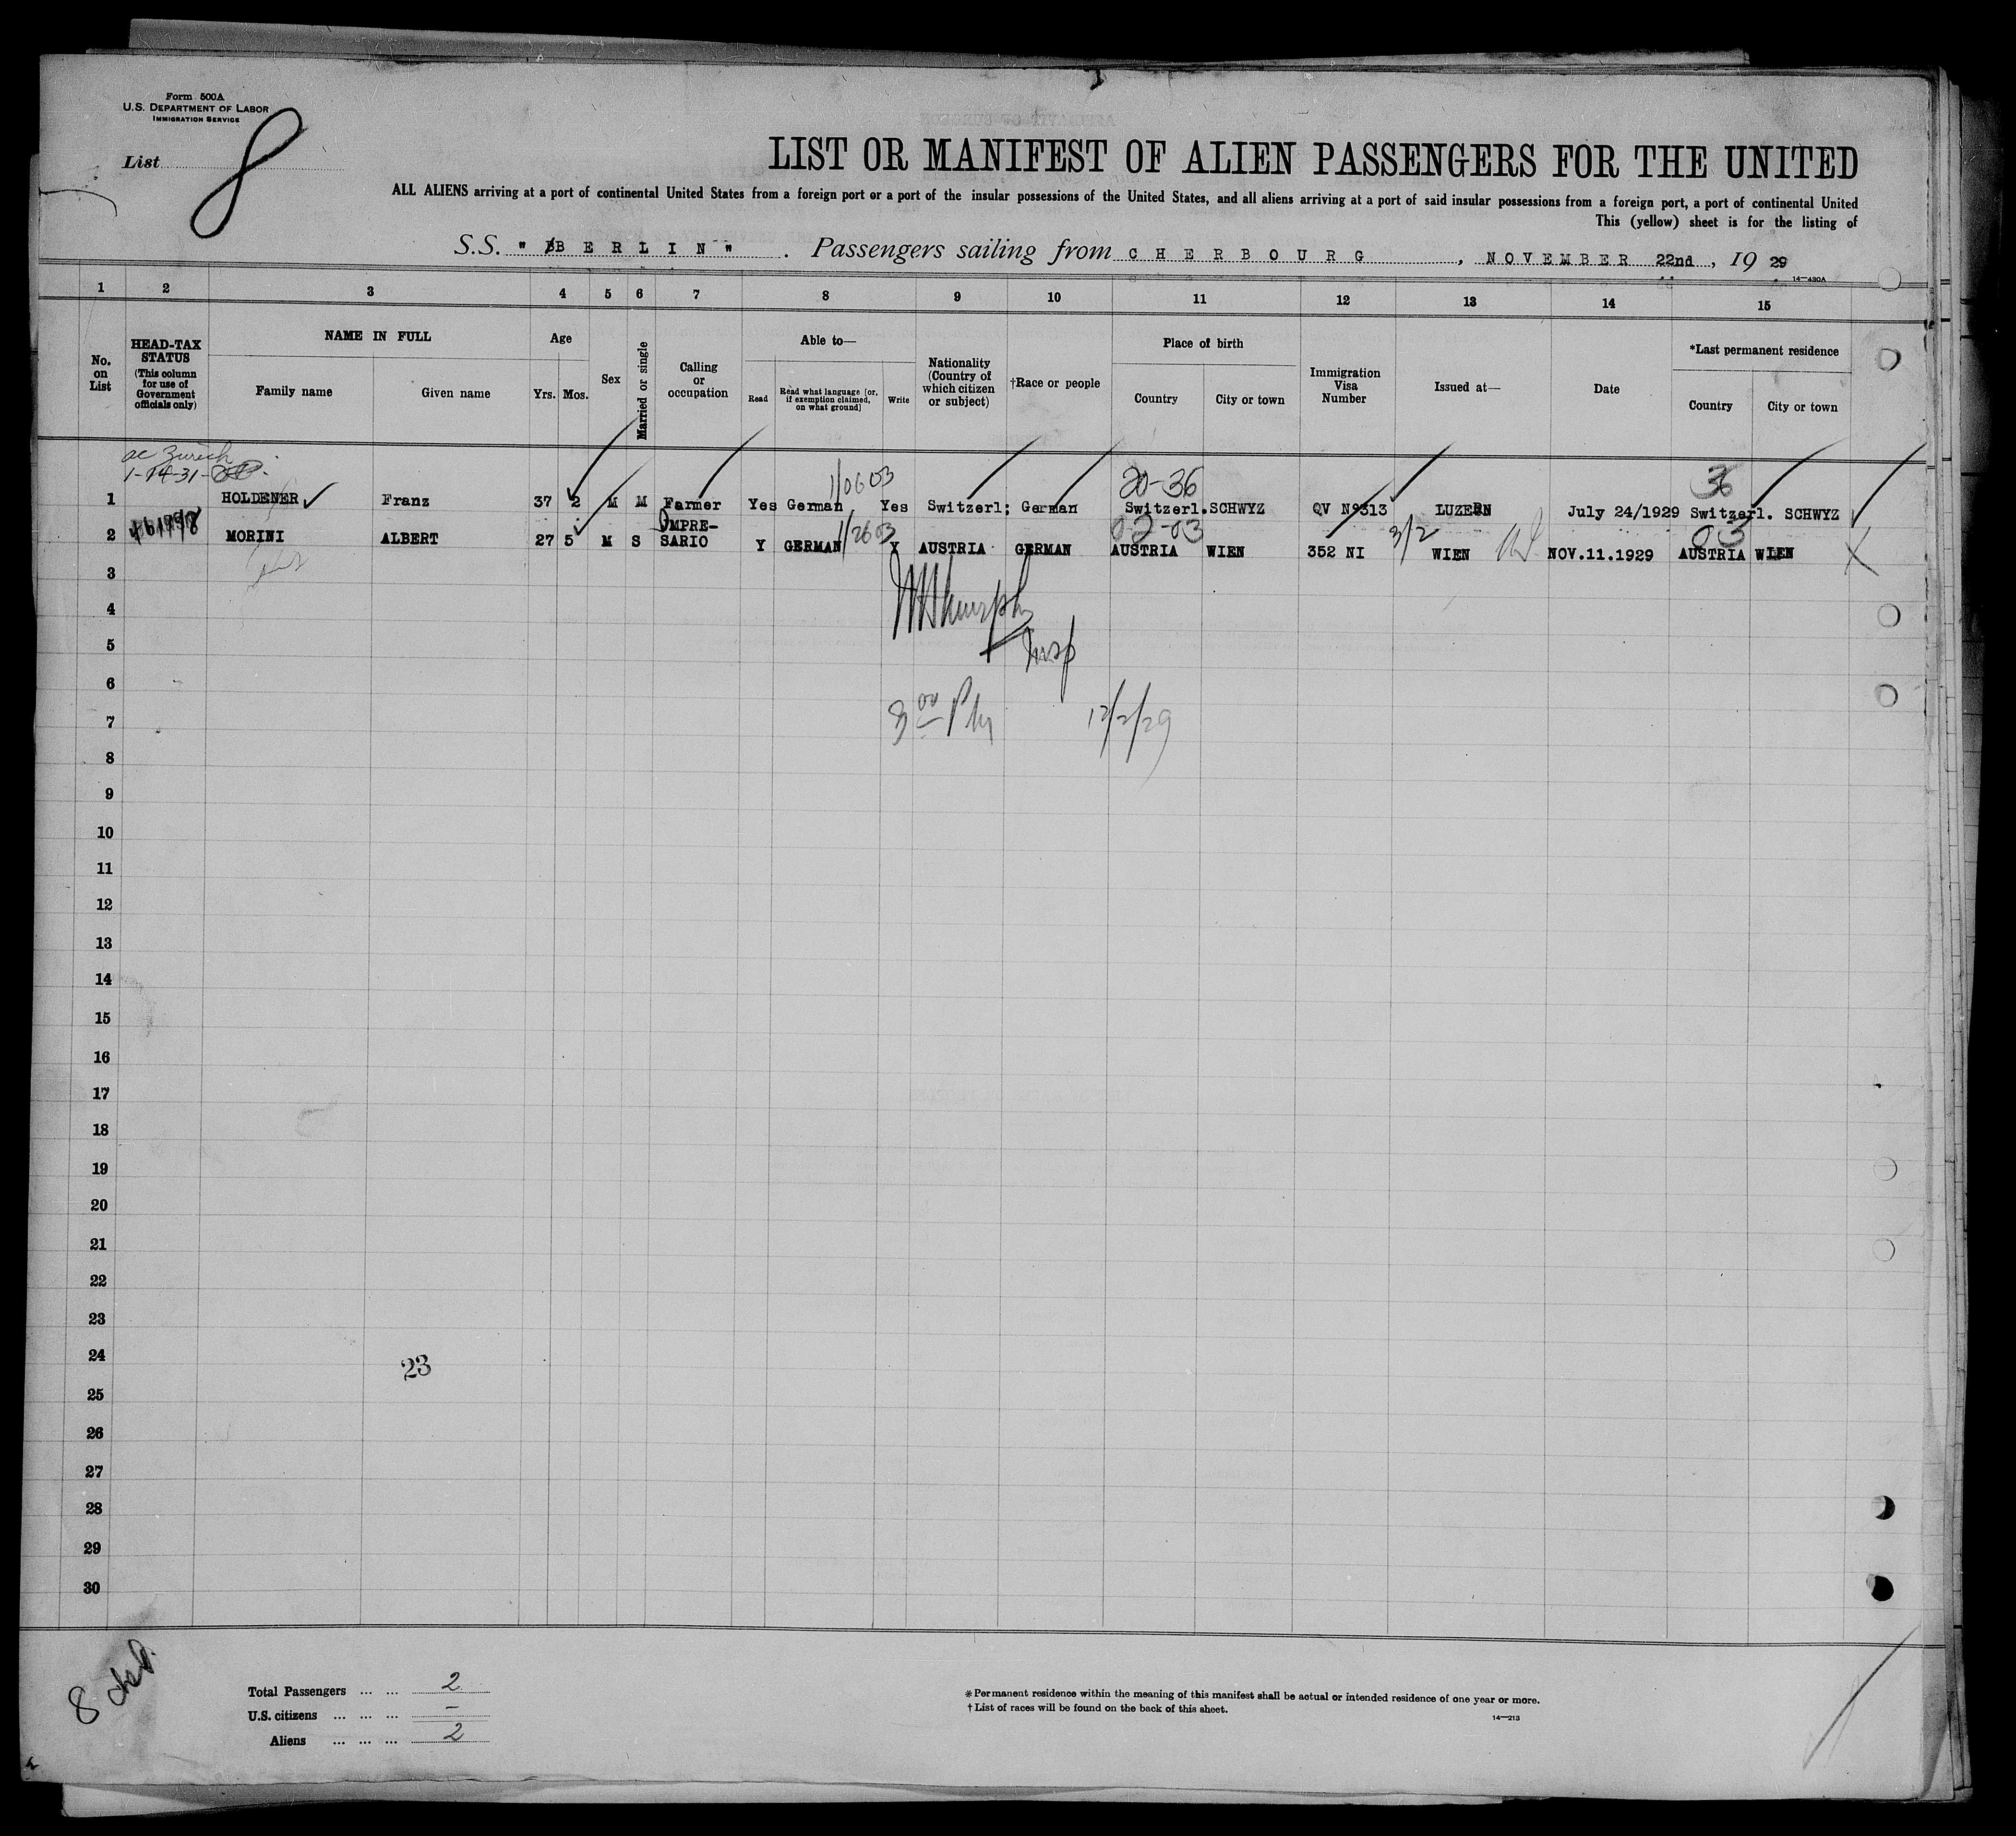 Form 500A
U.S. DEPARTMENT OF LABOR
IMMIGRATION SERVICE
List 8
LIST OR MANIFEST OF ALIEN PASSENGERS FOR THE UNITED
ALL ALIENS arriving at a port of continental United States from a foreign port or a port of the insular possessions of the United States, and all aliens arriving at a port of said insular possessions from a foreign port, a port of continental United
This (yellow) sheet is for the listing of
S.S. "BERLIN". Passengers sailing from CHERBOURG, NOVEMBER 22nd, 19 29
14—430A
1 2 3 4 5 6 7 8 9 10 11 12 13 14 15
No. on List
HEAD-TAX STATUS (This column for use of Government officials only)
NAME IN FULL
Family name Given name
Age
Yrs. Mos.
Sex
Married or single
Calling or occupation
Able to—
Read
Read what language [or, if exemption claimed, on what ground]
Write
Nationality (Country of which citizen or subject)
†Race or people
Place of birth
Country City or town
Immigration Visa Number
Issued at—
Date
*Last permanent residence
Country City or town
Zurich
1-14-31-
1/06 03
20-36
36
1 HOLDENER Franz 37 2 M M Farmer Yes German Yes Switzerl; German Switzerl. SCHWYZ QV Nº313 LUZERN July 24/1929 Switzerl. SCHWYZ
1/26 03
02-03
3/2
03
2 MORINI ALBERT 27 5 M S IMPRESARIO Y GERMAN Y AUSTRIA GERMAN AUSTRIA WIEN 352 NI WIEN NOV.11.1929 AUSTRIA WIEN
3
4
5
Insp
6
7
12/2/29
8
9
10
11
12
13
14
15
16
17
18
19
20
21
22
23
24
23
25
26
27
28
29
30
8
Total Passengers ... ... 2
U.S. citizens ... ... ... –
Aliens ... ... ... 2
* Permanent residence within the meaning of this manifest shall be actual or intended residence of one year or more.
† List of races will be found on the back of this sheet.
14—213